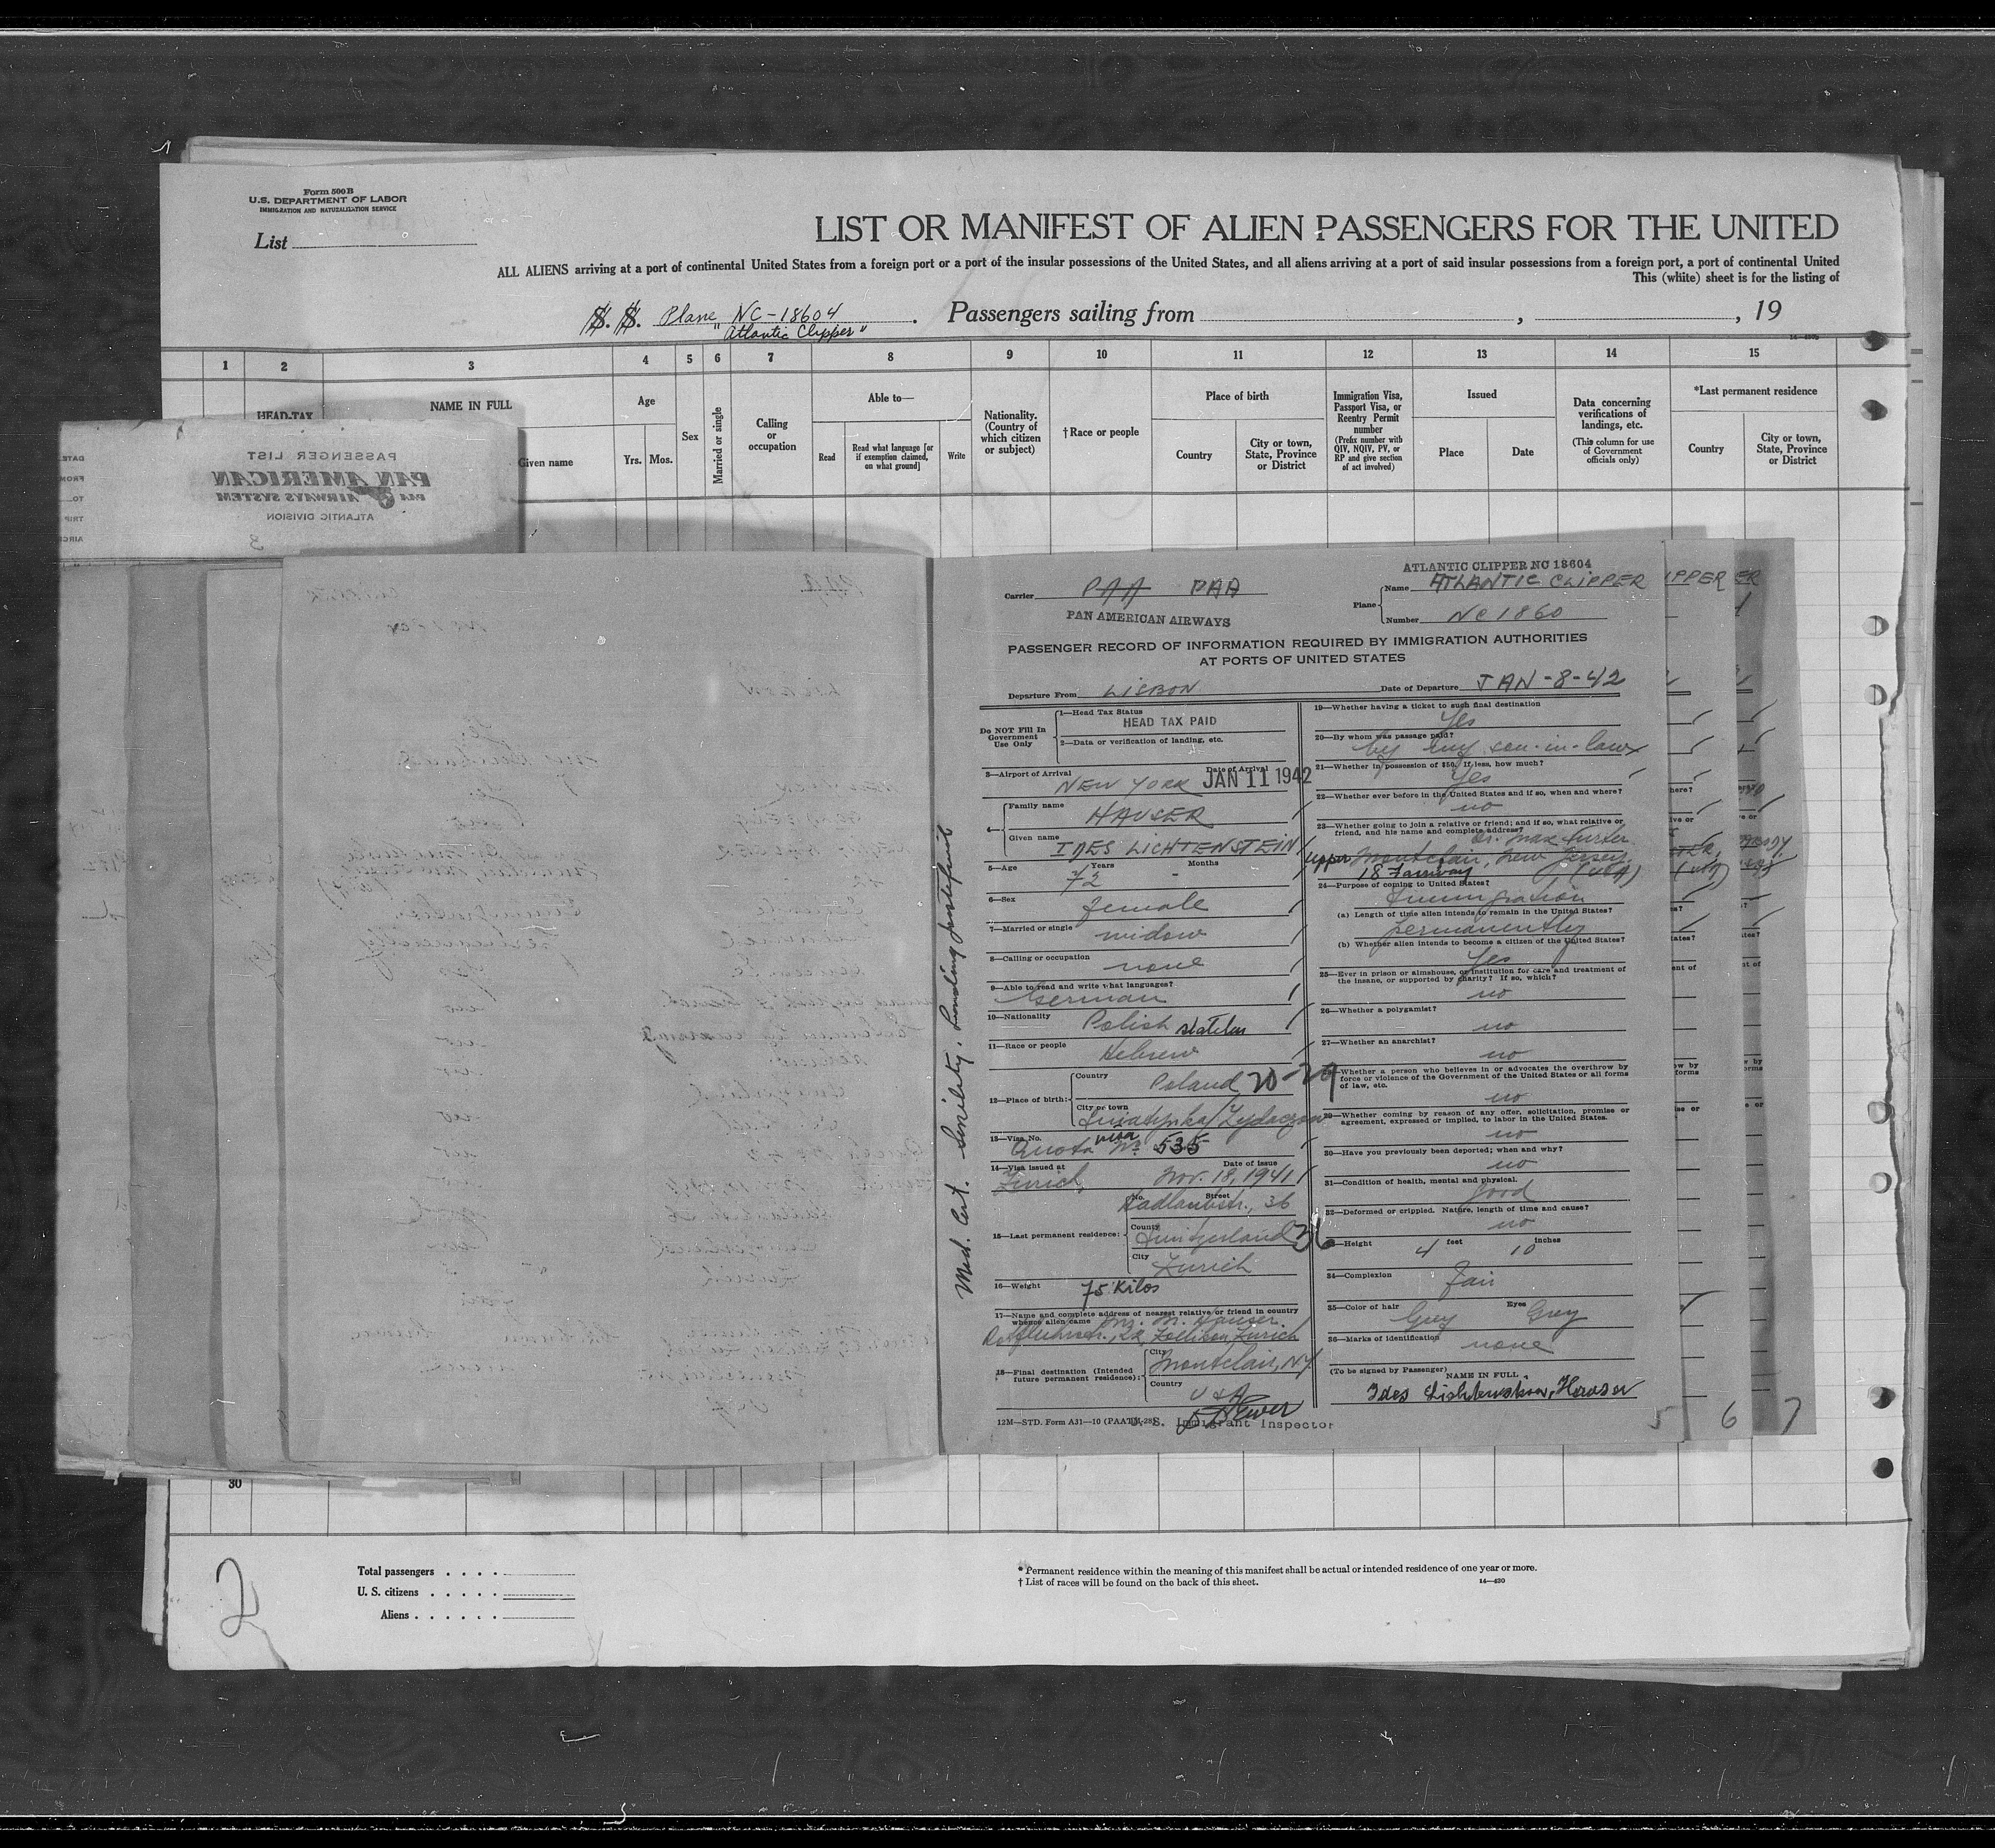 Form 500B
U.S. DEPARTMENT OF LABOR
IMMIGRATION AND NATURALIZATION SERVICE
List
LIST OR MANIFEST OF ALIEN PASSENGERS FOR THE UNITED
ALL ALIENS arriving at a port of continental United States from a foreign port or a port of the insular possessions of the United States, and all aliens arriving at a port of said insular possessions from a foreign port, a port of continental United
This (white) sheet is for the listing of
S. S. Plane NC-18604 . Passengers sailing from , , 19
"Atlantic Clipper"
1 2 3 4 5 6 7 8 9 10 11 12 13 14 15
HEAD-TAX
NAME IN FULL
Given name
Age
Yrs. Mos.
Sex
Married or single
Calling
or
occupation
Able to—
Read
Read what language [or
if exemption claimed,
on what ground]
Write
Nationality.
(Country of
which citizen
or subject)
†Race or people
Place of birth
Country
City or town,
State, Province
or District
Immigration Visa,
Passport Visa, or
Reentry Permit
number
(Prefix number with
QIV, NQIV, PV, or
RP and give section
of act involved)
Issued
Place
Date
Data concerning
verifications of
landings, etc.
(This column for use
of Government
officials only)
*Last permanent residence
Country
City or town,
State, Province
or District
PASSENGER LIST
PAN AMERICAN
PAA AIRWAYS SYSTEM
ATLANTIC DIVISION
3
ATLANTIC CLIPPER NC 18604
Carrier PAA PAA
PAN AMERICAN AIRWAYS
Plane Name ATLANTIC CLIPPER
Number NC 1860
PASSENGER RECORD OF INFORMATION REQUIRED BY IMMIGRATION AUTHORITIES
AT PORTS OF UNITED STATES
Departure From LISBON Date of Departure JAN-8-42
Do NOT Fill In
Government
Use Only
1—Head Tax Status
HEAD TAX PAID
2—Data or verification of landing, etc.
3—Airport of Arrival Date of Arrival
NEW YORK JAN 11 1942
4— Family name
HAUSER
Given name
IDES LICHTENSTEIN
5—Age Years Months
72 -
6—Sex
female
7—Married or single
widow
8—Calling or occupation
none
9—Able to read and write what languages?
German
10—Nationality
Polish
11—Race or people
Hebrew
12—Place of birth: Country
Poland 20-29
City or town
13—Visa No.
Quota visa Nº 535
14—Visa issued at Date of issue
Zurich, Nov. 18, 1941
15—Last permanent residence: No. Street
Hadlaubstr., 36
County
Switzerland 36
City
Zurich
16—Weight 75 Kilos
17—Name and complete address of nearest relative or friend in country
whence alien came M. Hauser
Zurich
18—Final destination (Intended
future permanent residence):
City
Montclair, NY.
Country
USA
12M—STD. Form A31—10 (PAA
U. S. Immigrant Inspector
Med. Cert. Senility,
19—Whether having a ticket to such final destination
Yes
20—By whom was passage paid?
by my son-in-law
21—Whether in possession of $50. If less, how much?
Yes
22—Whether ever before in the United States and if so, when and where?
no
23—Whether going to join a relative or friend; and if so, what relative or
friend, and his name and complete address?
Dr. Max Furter
Upper Montclair, New Jersey.
18 Fairway (USA)
24—Purpose of coming to United States?
Immigration
(a) Length of time alien intends to remain in the United States?
permanently
(b) Whether alien intends to become a citizen of the United States?
Yes
25—Ever in prison or almshouse, or institution for care and treatment of
the insane, or supported by charity? If so, which?
no
26—Whether a polygamist?
no
27—Whether an anarchist?
no
Whether a person who believes in or advocates the overthrow by
force or violence of the Government of the United States or all forms
of law, etc.
no
29—Whether coming by reason of any offer, solicitation, promise or
agreement, expressed or implied, to labor in the United States.
no
30—Have you previously been deported; when and why?
no
31—Condition of health, mental and physical.
good
32—Deformed or crippled. Nature, length of time and cause?
no
—Height 4 feet 10 inches
34—Complexion
fair
35—Color of hair Grey Eyes Grey
36—Marks of identification
none
(To be signed by Passenger)
NAME IN FULL
5 6 7
30
2
Total passengers
U. S. citizens
Aliens
* Permanent residence within the meaning of this manifest shall be actual or intended residence of one year or more.
† List of races will be found on the back of this sheet.
14—430